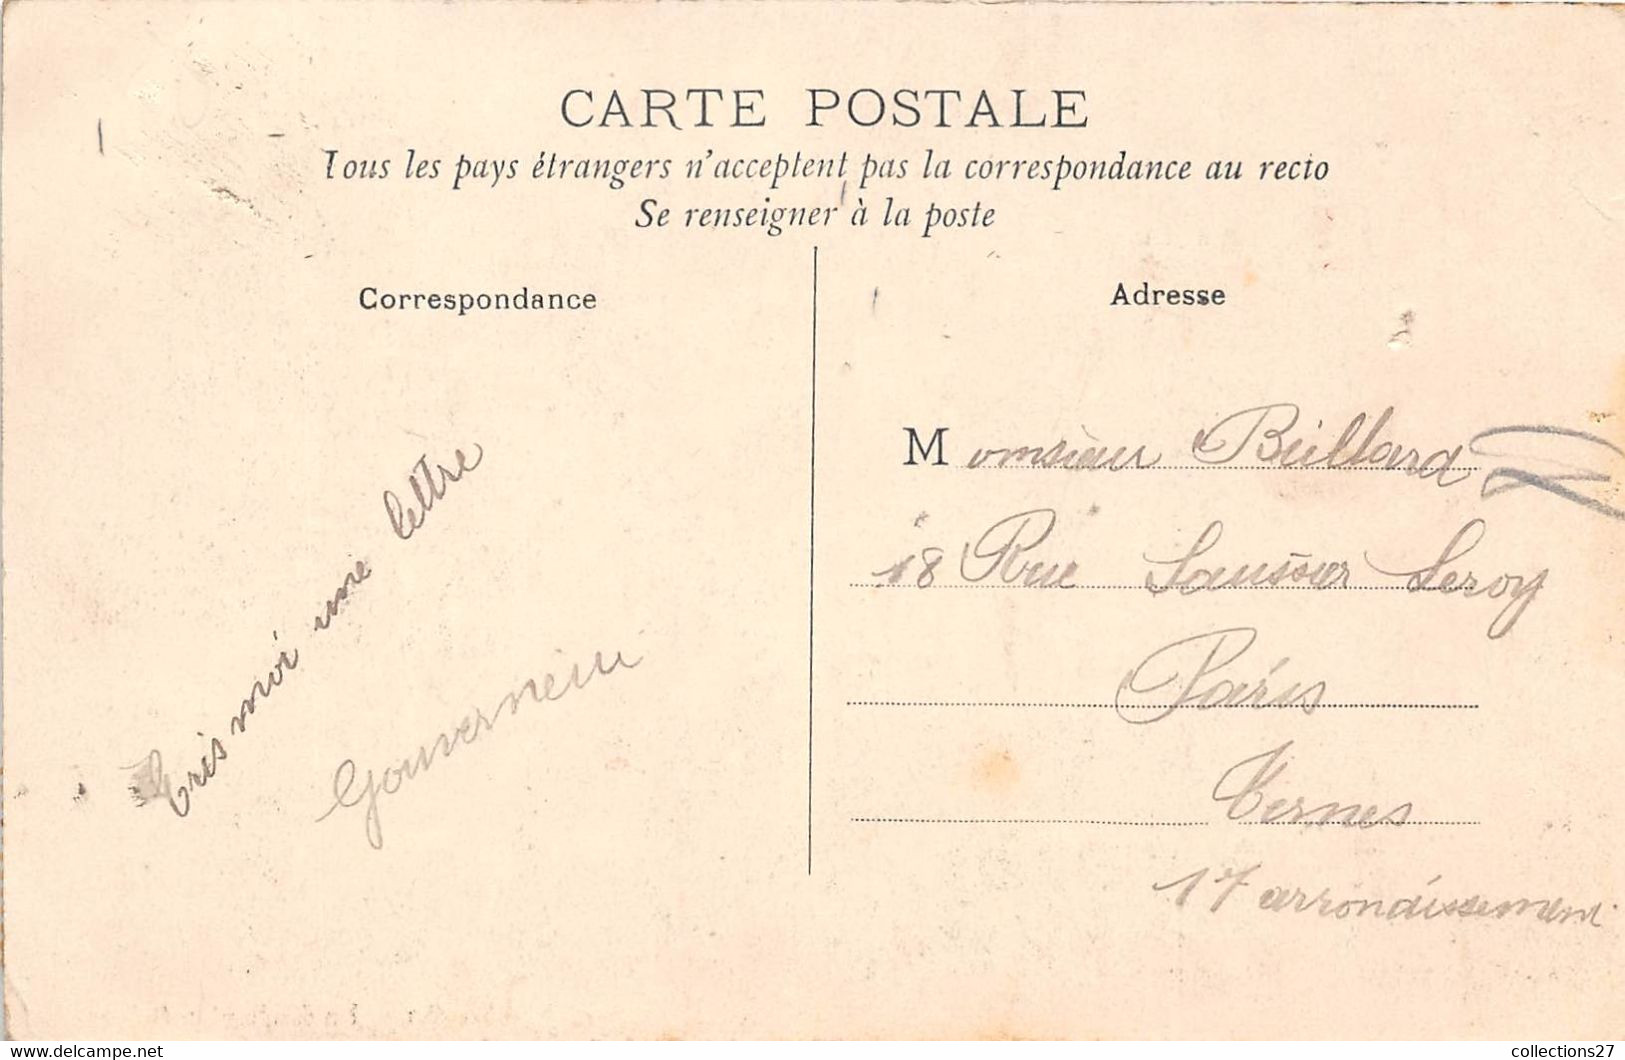 CARTE POSTALE
Tous les pays étrangers n'acceptent pas la correspondance au recto
Se renseigner à la poste
Correspondance
Adresse
Ecris moi une lettre
Gouverneur
Monsieur Billard
18 Rue Saussier Leroy
Paris
Ternes
17 arrondissement
collections27